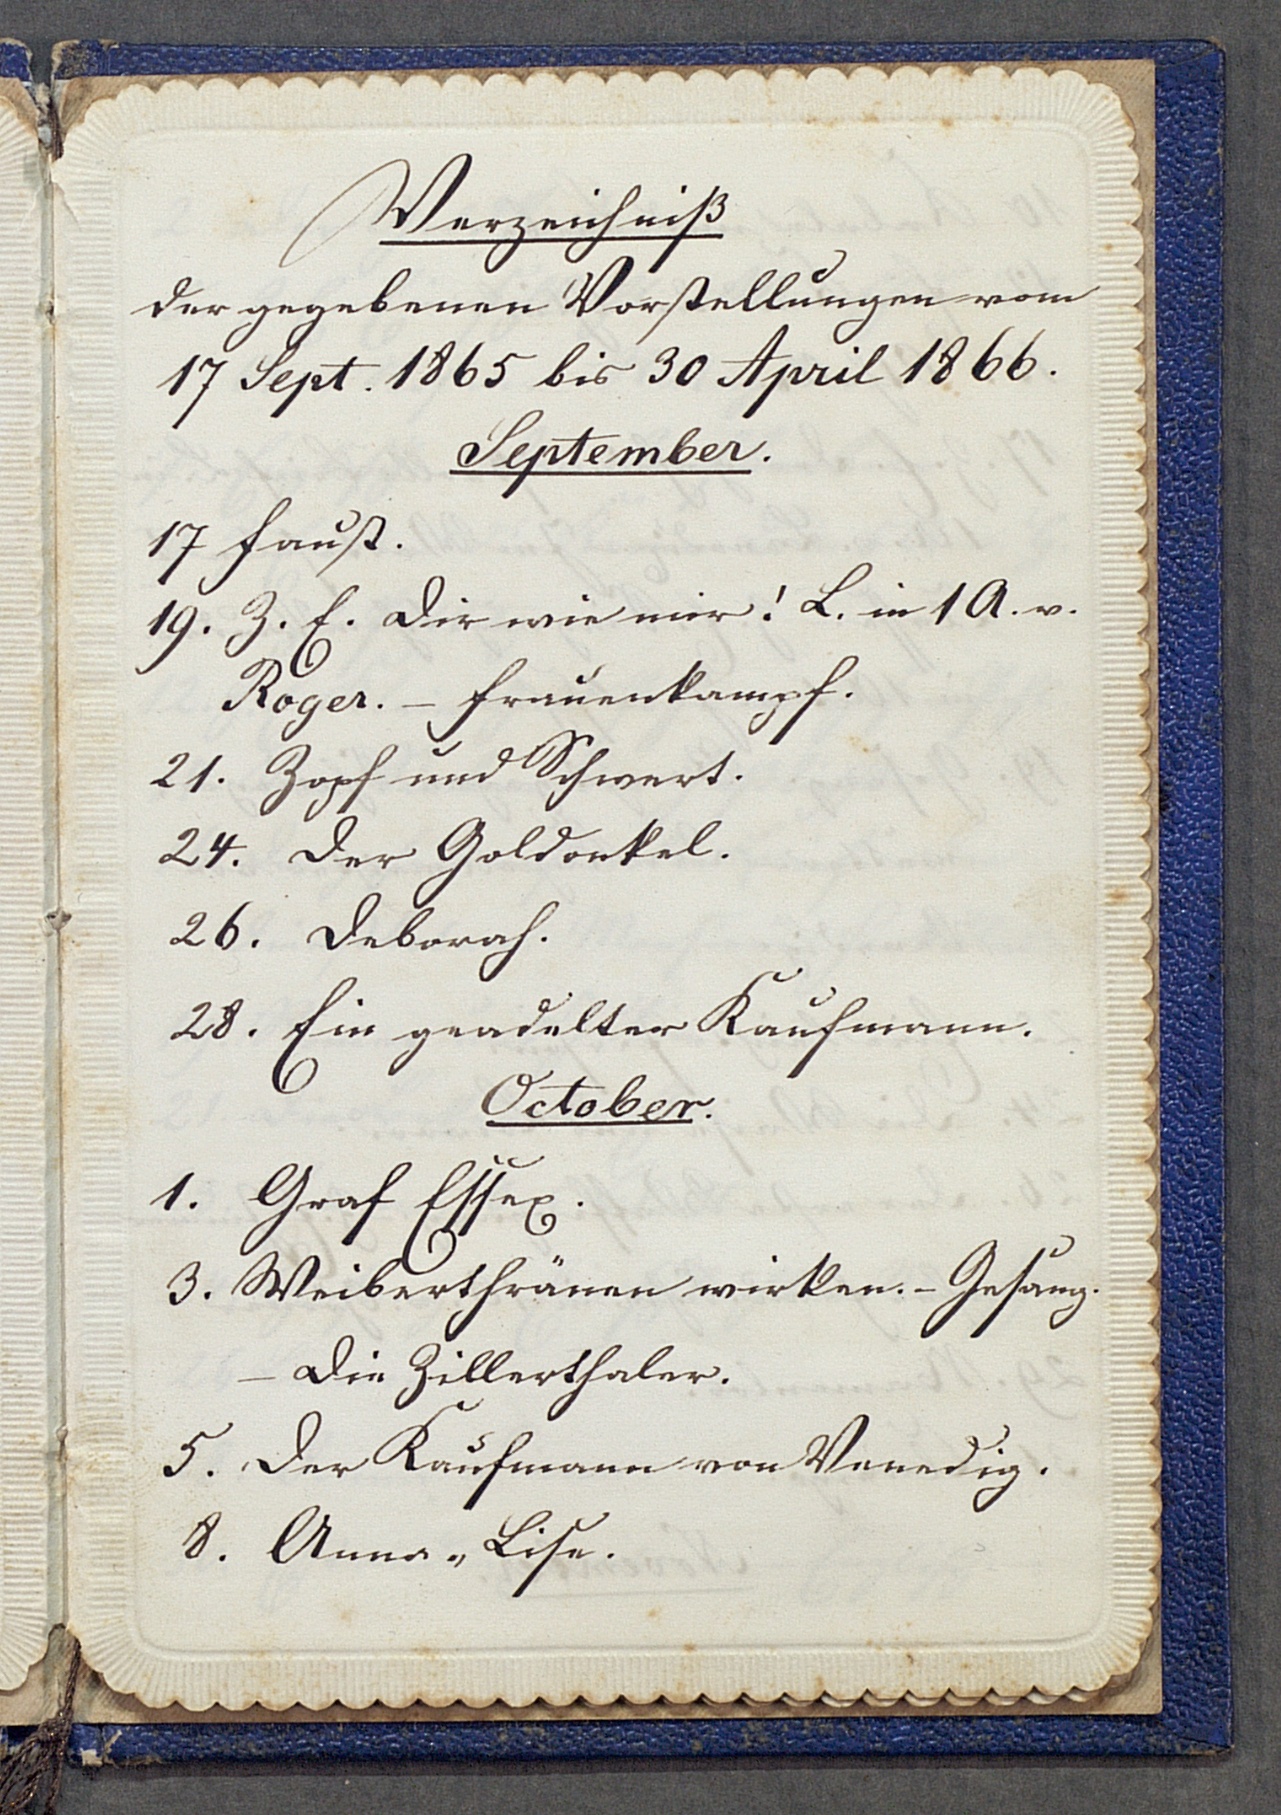 Verzeichniß
der gegebenen Vorstellungen vom
17 Sept. 1865 bis 30 April 1866.
September.
17 Faust.
19. Z. E. Dir wie mir! L. in 1 A. v.
Roger. – Frauenkampf.
21. Zopf und Schwert.
24. Der Goldonkel.
26. Deborah.
28. Ein geadelter Kaufmann.
October.
1. Graf Essex.
3. Weiberthränen wirken. – Gesang.
– Die Zillerthaler.
5. Der Kaufmann von Venedig.
8. Anna-Lise.